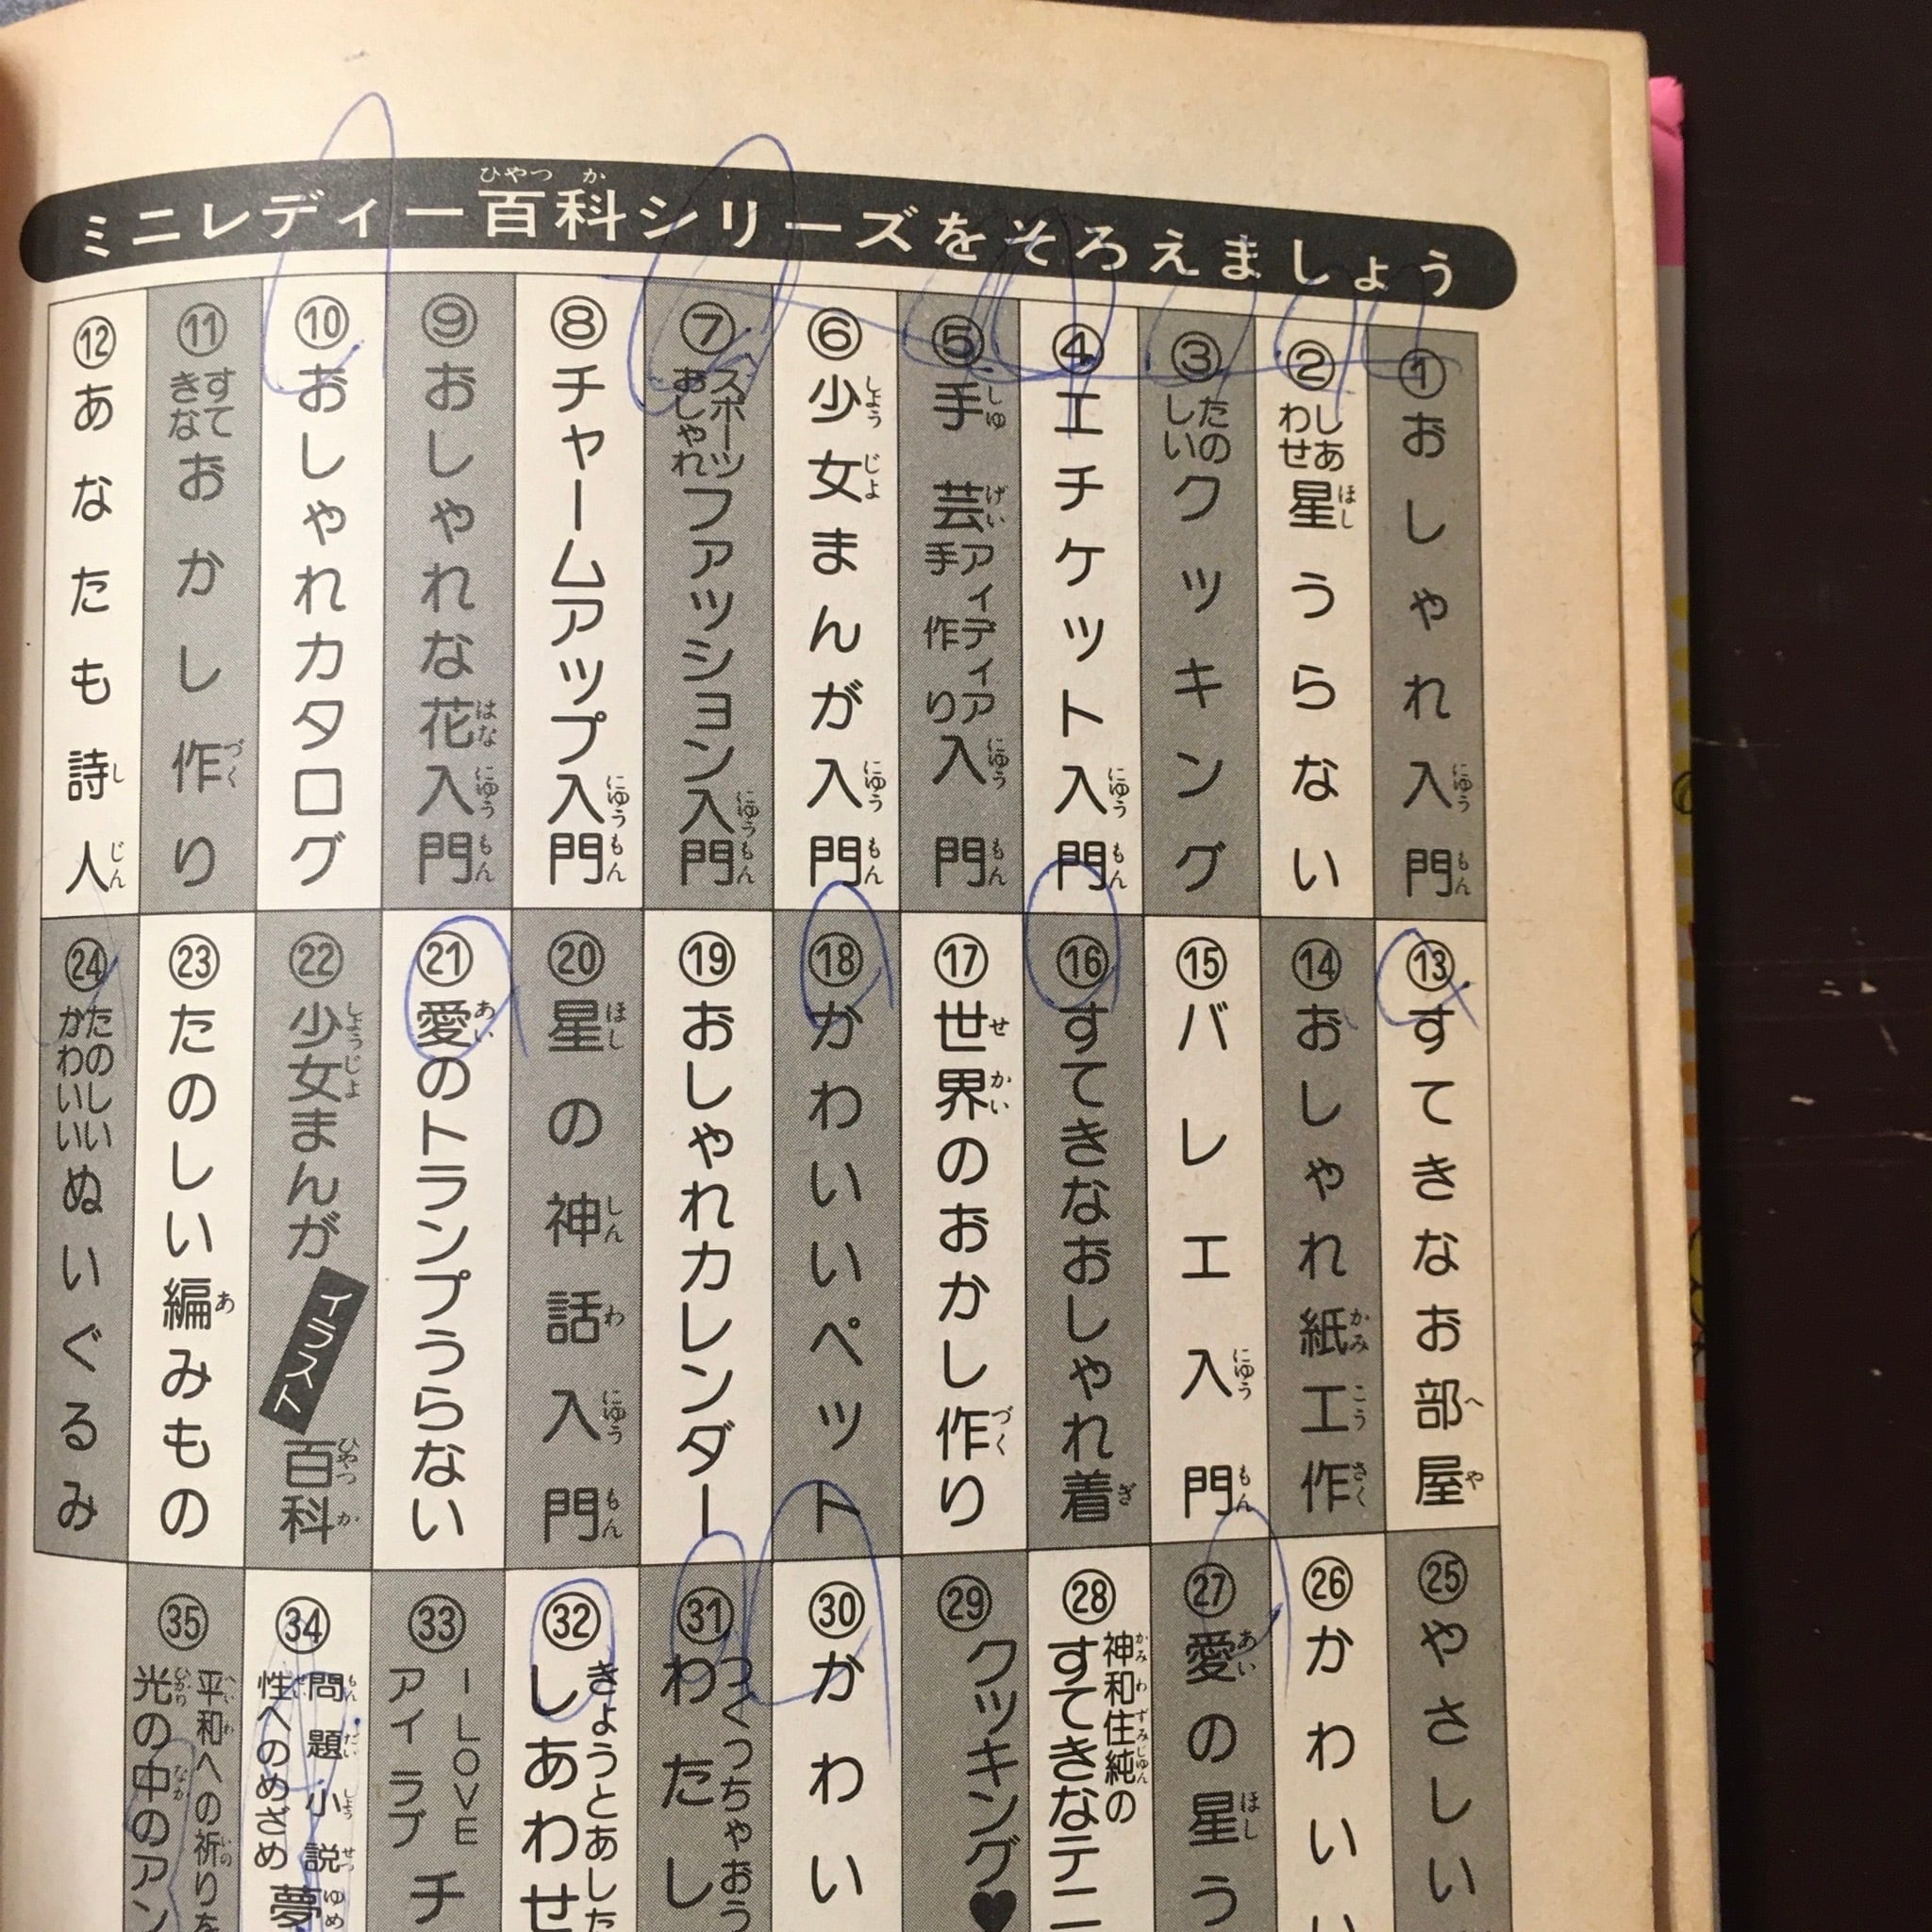 ミニレディー百科シリーズをそろえましょう
①おしゃれ入門
②しあわせ星うらない
③たのしいクッキング
④エチケット入門
⑤手芸アイディア手作り入門
⑥少女まんが入門
⑦スポーツおしゃれファッション入門
⑧チャームアップ入門
⑨おしゃれな花入門
⑩おしゃれカタログ
⑪すてきなおかし作り
⑫あなたも詩人
⑬すてきなお部屋
⑭おしゃれ紙工作
⑮バレエ入門
⑯すてきなおしゃれ着
⑰世界のおかし作り
⑱かわいいペット
⑲おしゃれカレンダー
⑳星の神話入門
㉑愛のトランプうらない
㉒少女まんがイラスト百科
㉓たのしい編みもの
㉔たのしいかわいいぬいぐるみ
㉕やさしい
㉖かわいい
㉗愛の星う
㉘神和住純のすてきなテニ
㉙クッキング♥
㉚かわい
㉛つくっちゃおうわたし
㉜きょうとあしたしあわせ
㉝I LOVE アイラブチ
㉞問題小説性へのめざめ夢
㉟平和への祈りを光の中のアン